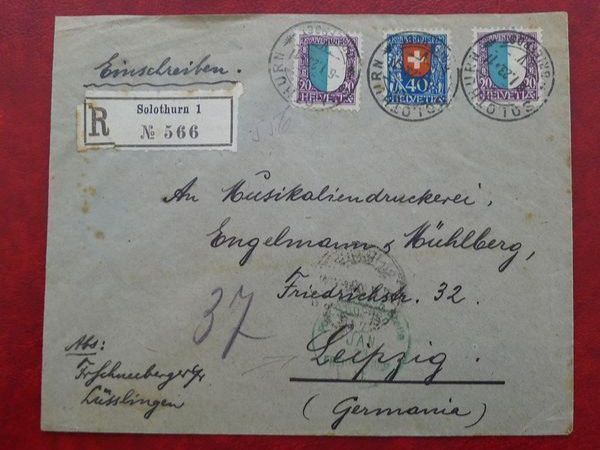 Einschreiben.
R
Solothurn 1
№ 566
20 HELVETIA 20
40 HELVETIA
20 HELVETIA 20
SOLOTHURN
An Musikaliendruckerei,
Engelmann & Mühlberg,
Friedrichstr. 32.
37
JAN
Leipzig.
(Germania)
Abs:
Fr. Schneeberger
Lüsslingen